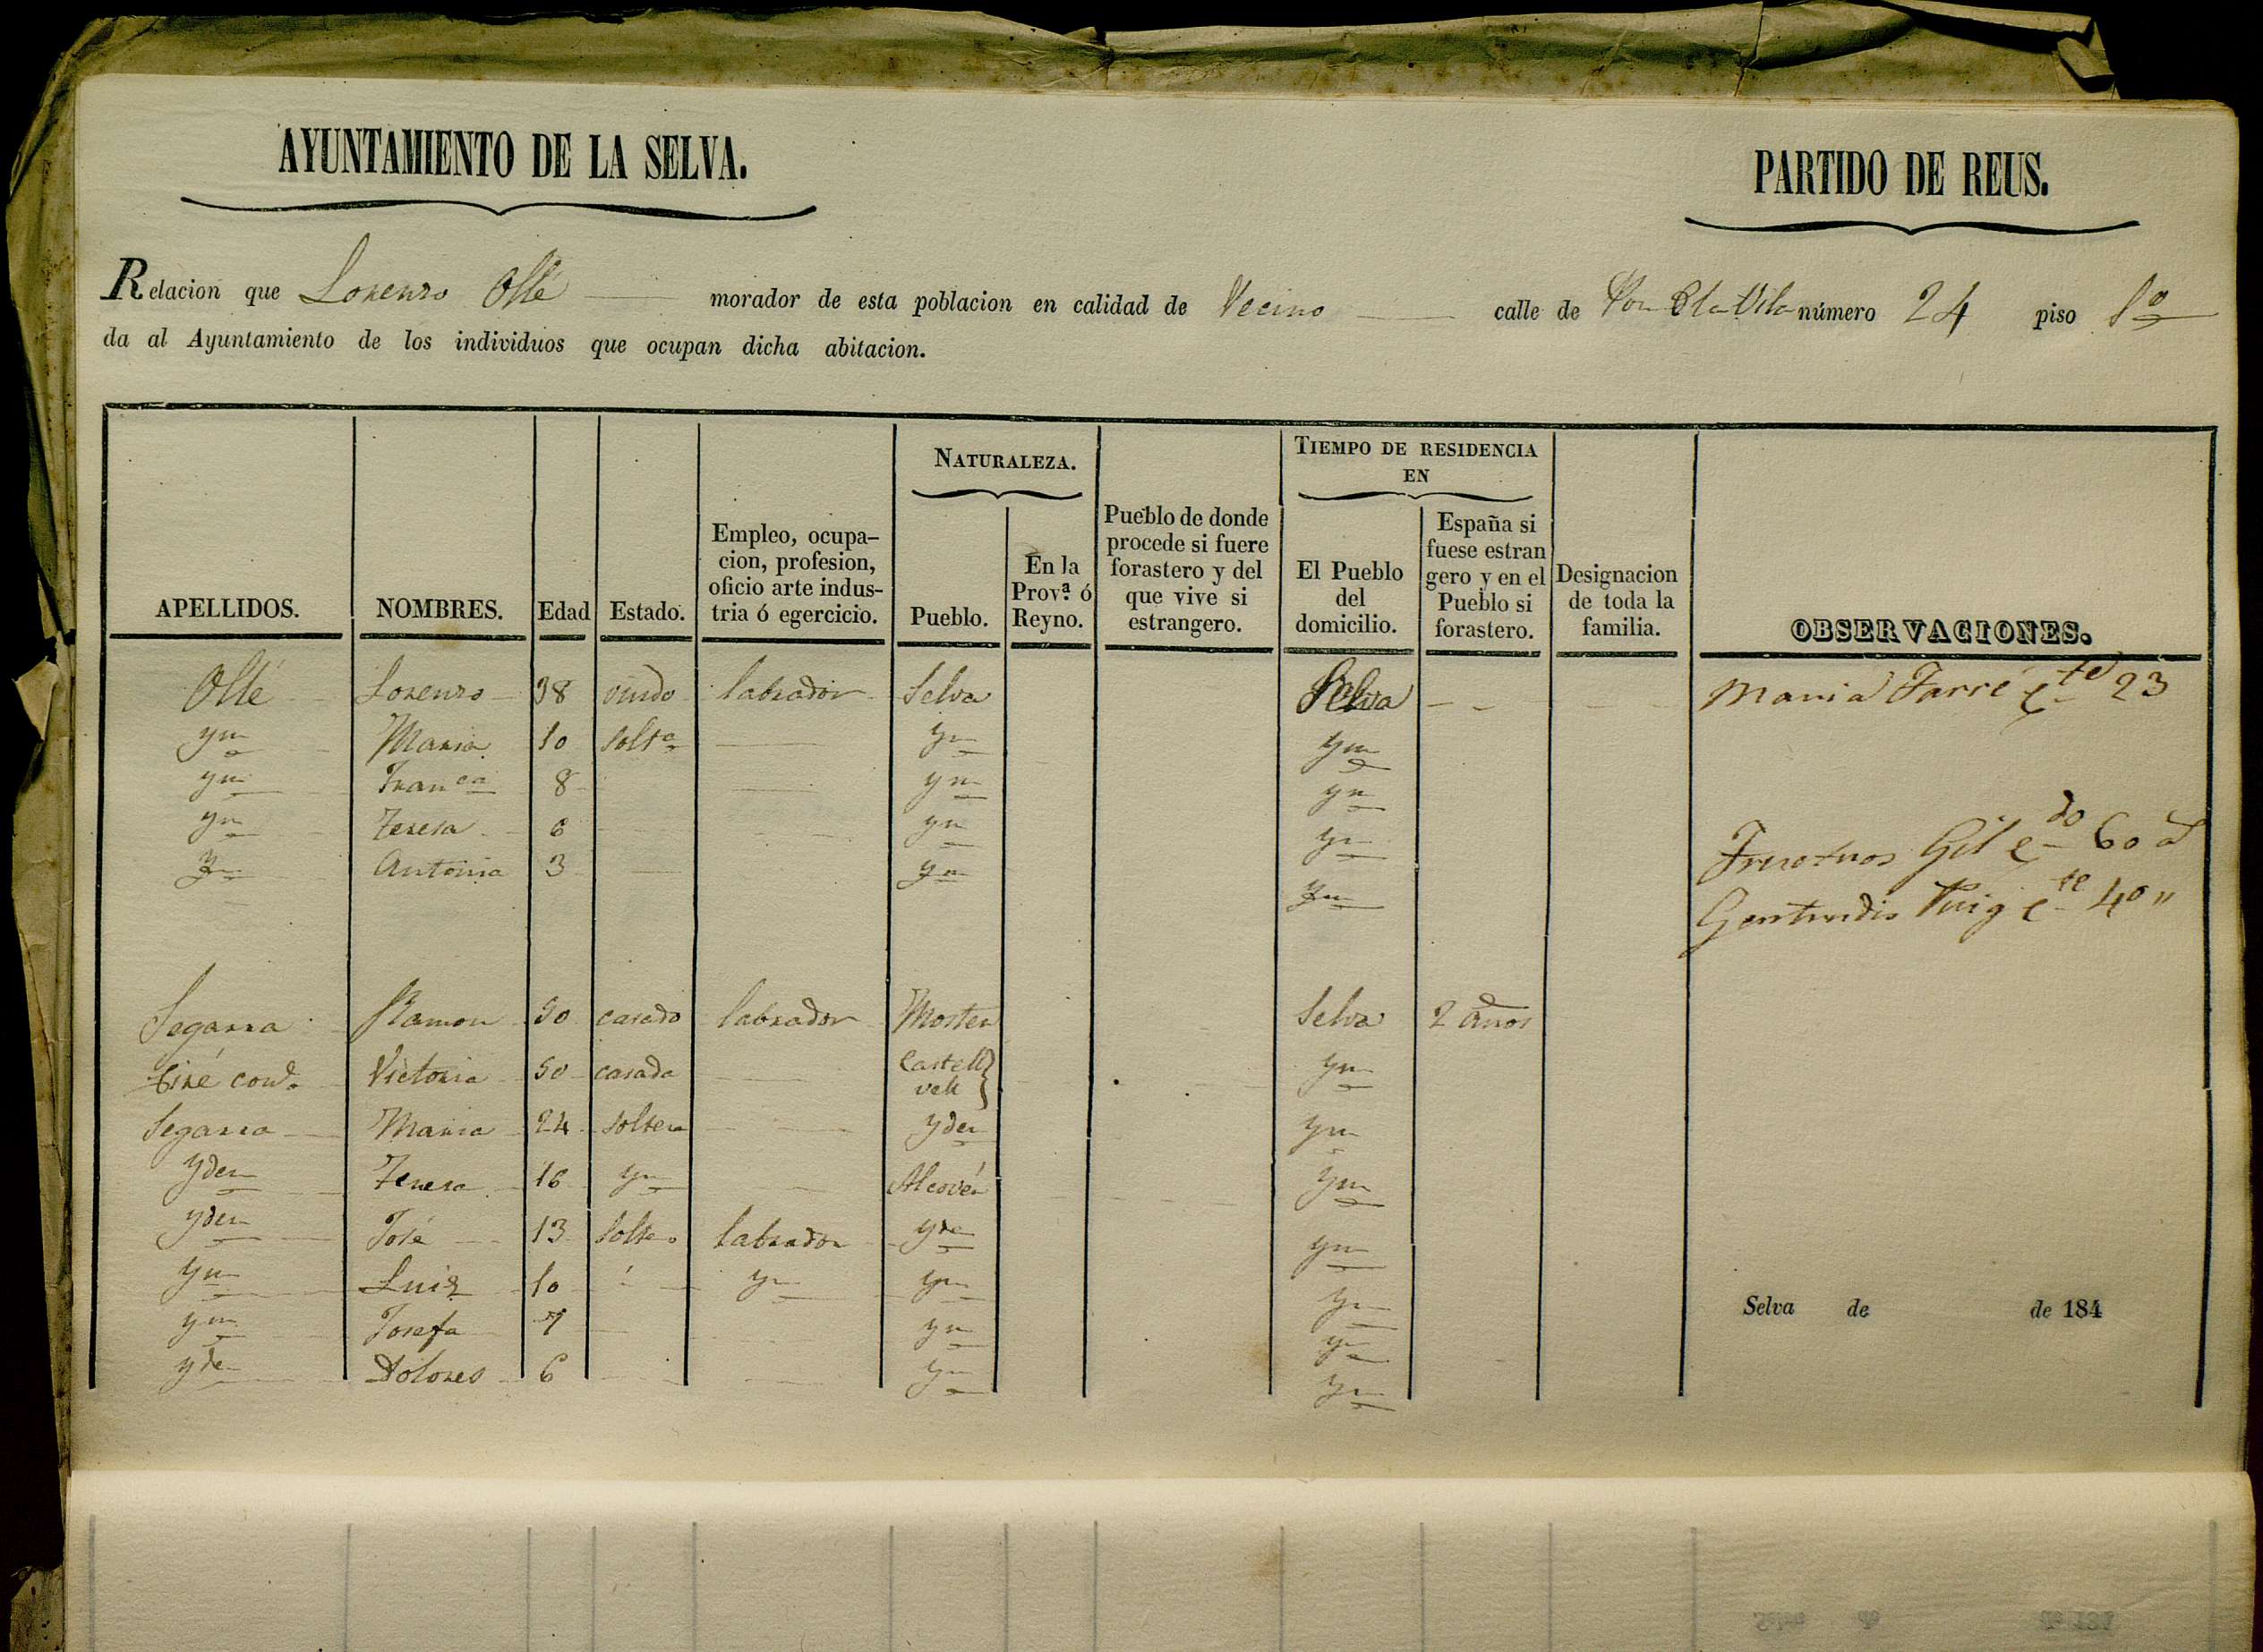 AYUNTAMIENTO DE LA SELVA.
PARTIDO DE REUS.
Relacion que Lorenzo Ollé morador de esta poblacion en calidad de Vecino calle de Vila número 24 piso 1º
da al Ayuntamiento de los individuos que ocupan dicha abitacion.
APELLIDOS. NOMBRES. Edad Estado. Empleo, ocupa-cion, profesion, oficio arte indus-tria ó egercicio. NATURALEZA. Pueblo. En la Prov.ª ó Reyno. Pueblo de donde procede si fuere forastero y del que vive si estrangero. TIEMPO DE RESIDENCIA EN El Pueblo del domicilio. España si fuese estran gero y en el Pueblo si forastero. Designacion de toda la familia. OBSERVACIONES.
Ollé Lorenzo 38 viudo labrador Selva Selva Maria Farré cte 23
ym Maria 10 solta ym ym
ym Franca 8 ym ym
ym Teresa 6 ym ym
ym Antonia 3 ym ym
Gil 60
Gertrudis Puig cte 40 "
Segarra Ramon 50 casado labrador Moster Selva 2 años
Giné Victoria 50 casada Castell vell ym
Segarra Maria 24 soltera yden ym
yden Teresa 16 ym Alcovér ym
yden José 13 solto labrador yde ym
ym Luis 10 ym ym ym
ym Josefa 7 ym ym
yde Dolores 6 ym ym
Selva de de 184